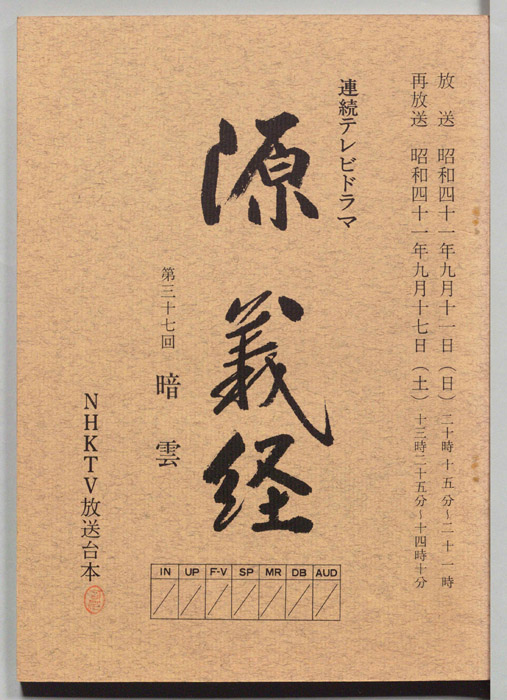 放送 昭和四十一年九月十一日(日) 二十時十五分~二十一時
再放送 昭和四十一年九月十七日(土) 十三時二十五分~十四時十分
連続テレビドラマ
源義経
第三十七回 暗雲
NHKTV放送台本
IN UP F-V SP MR DB AUD